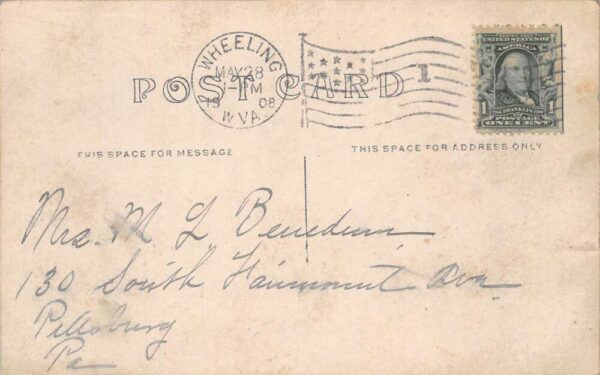 WHEELING
MAY 28
-PM
1908
W.VA.
1
POST CARD
UNITED STATES OF AMERICA
FRANKLIN
1 POSTAGE 1
ONE CENT
THIS SPACE FOR MESSAGE
THIS SPACE FOR ADDRESS ONLY
Mrs. M. L Benedum
130 South Fairmount Ave
Pittsburg
Pa